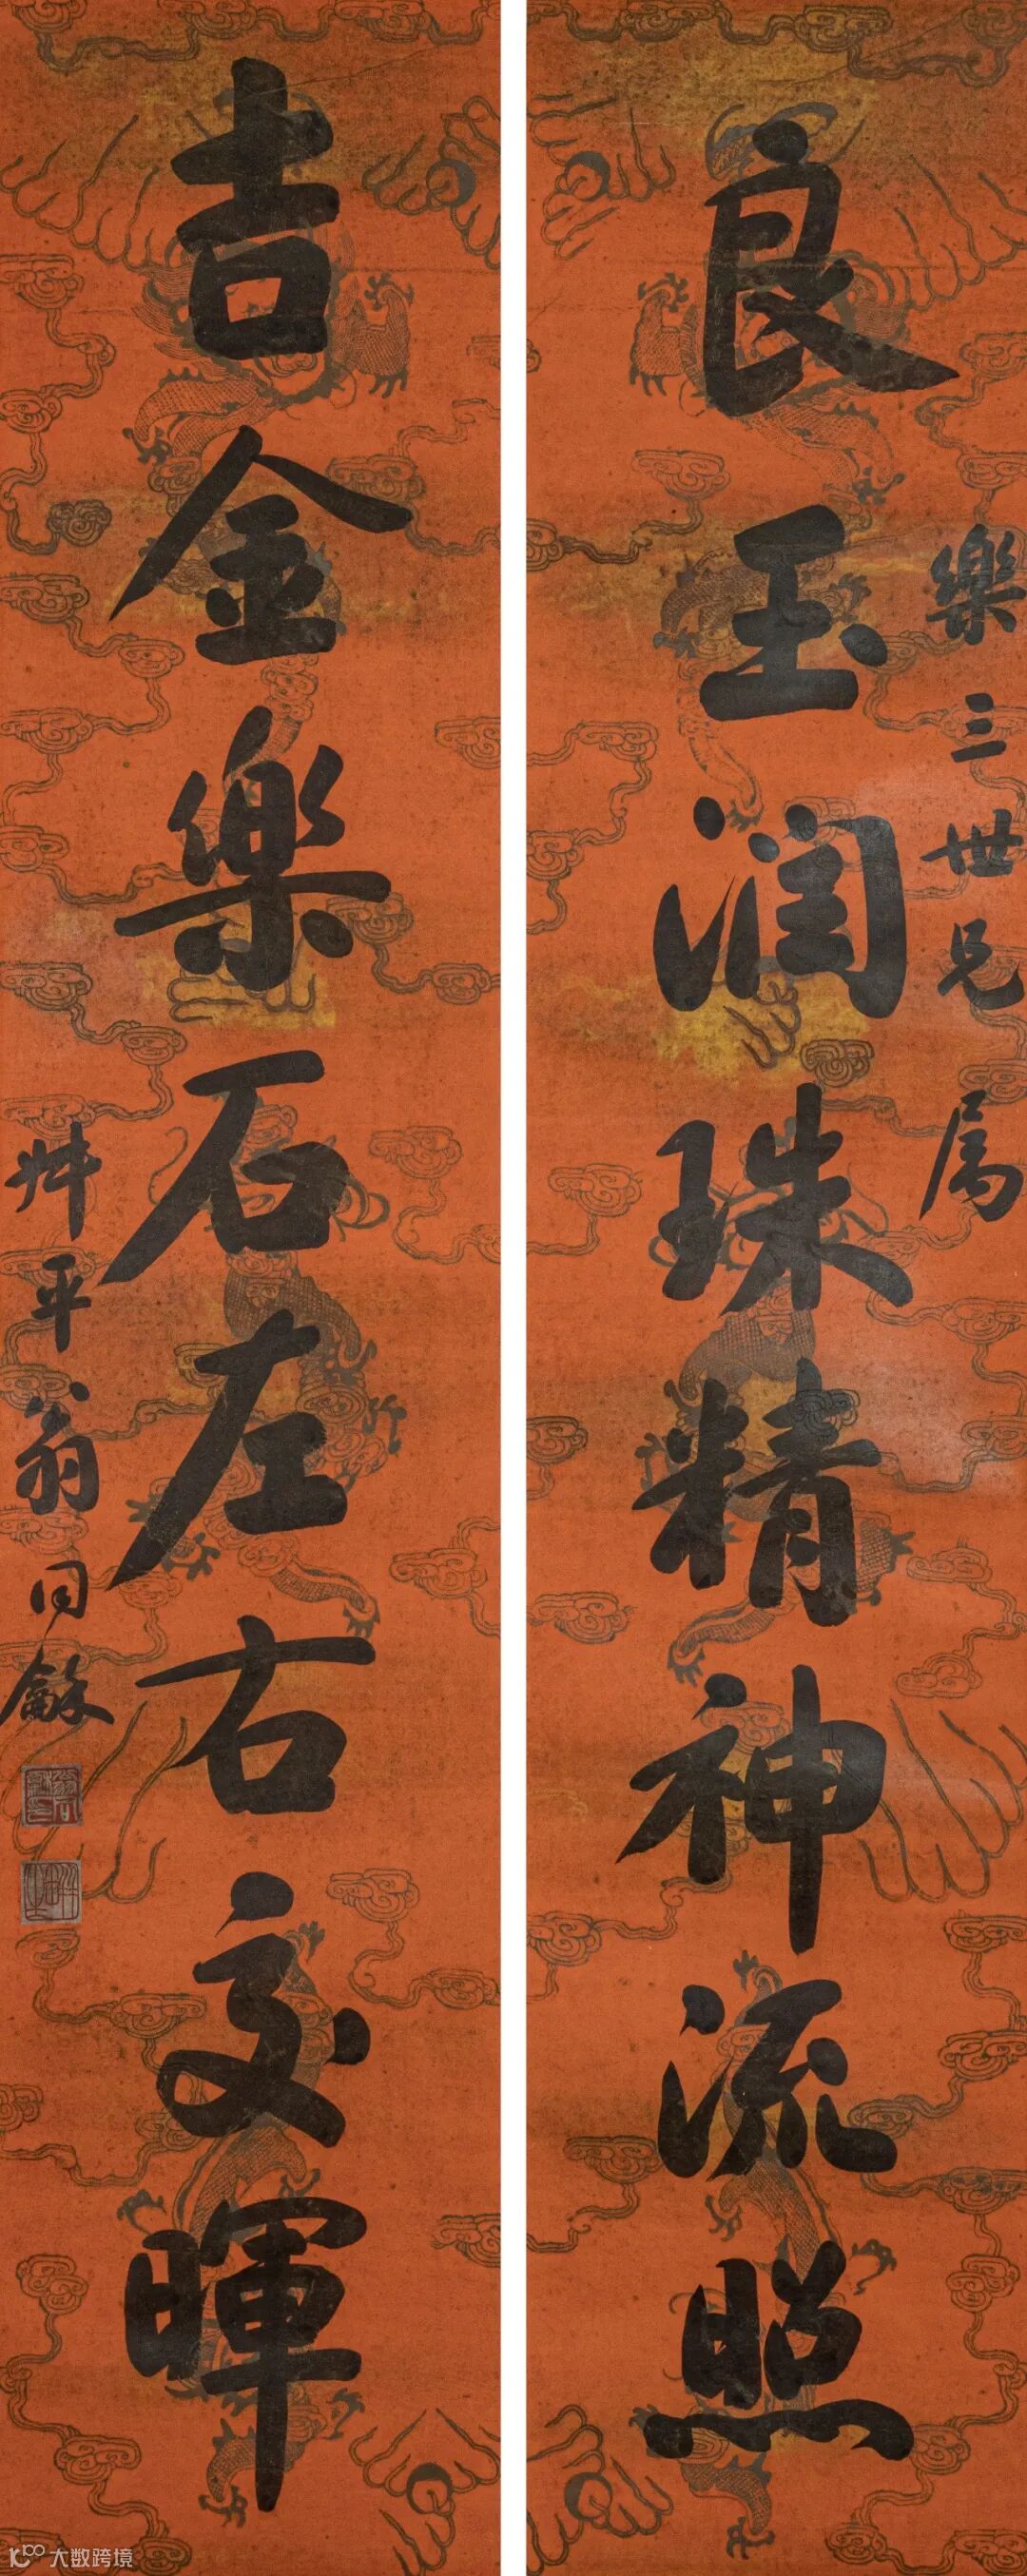 良玉润珠精神流照
樂三世兄属
吉金樂石左右交暉
叔平翁同龢
大数跨境